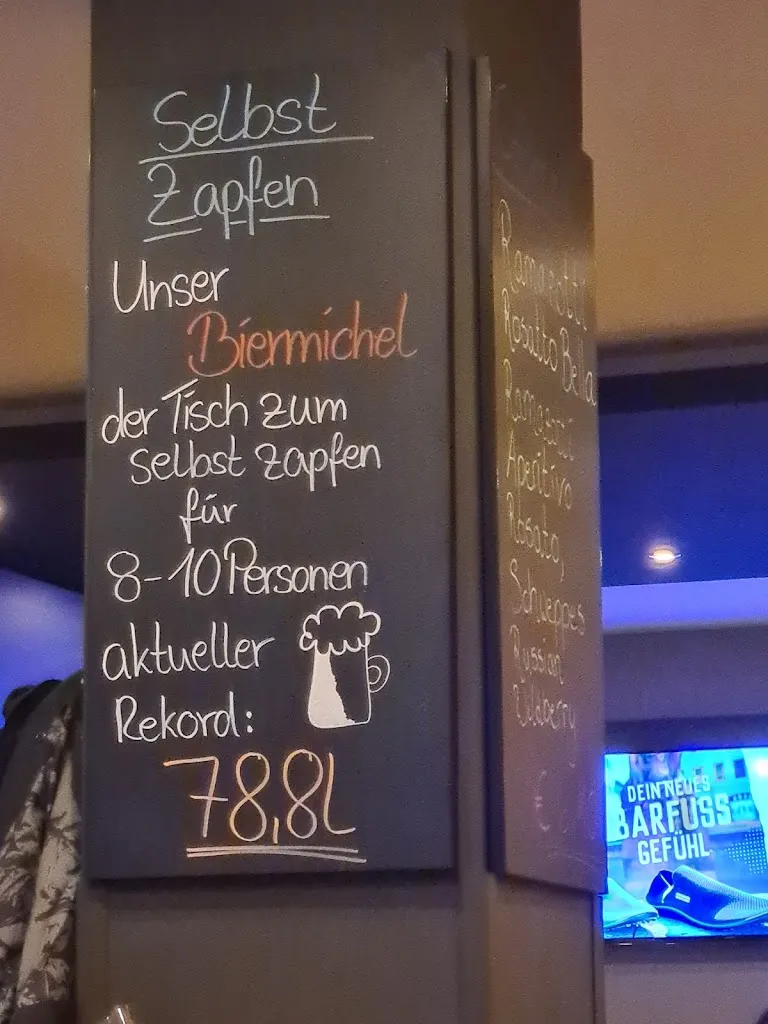 Selbst
Zapfen
Unser
Biermichel
der Tisch zum
selbst zapfen
für
8-10 Personen
aktueller
Rekord:
78,8L
Ramazotti
Rosatto Bella
Ramazotti
Aperitivo
Rosato,
Schweppes
Russian
Wildberry
€
DEIN NEUES
BARFUSS
GEFÜHL